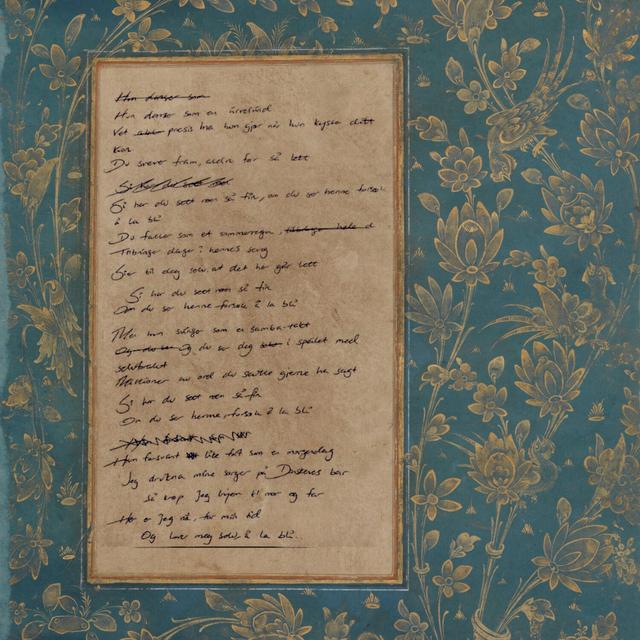 Hun danser som
Hun danser som en
Vet presis hva hun gjør når hun kysser ditt
Du svevt fram, aldri før så lett
Si har du sett noen så fin, om du ser henne forsøk
å la bli
Du faller som et sommerregn, hele d
Tilbringe dager i hennes seng
Sier til deg selv at det har gått lett
Si har du sett noen så fin
Om du ser henne forsøk å la bli
Men hun svinger som en samba
Og du ser deg i speilet med
selvforakt
av ord du skulle gjerne ha sagt
Si har du sett noen så fin
Om du ser henne forsøk å la bli
Hun forsvant like fort som en morgendag
Jeg drukna mine sorger på bar
så krøp Jeg hjem til mor og far
Her er Jeg nå, for min
Og lover meg selv å la bli.